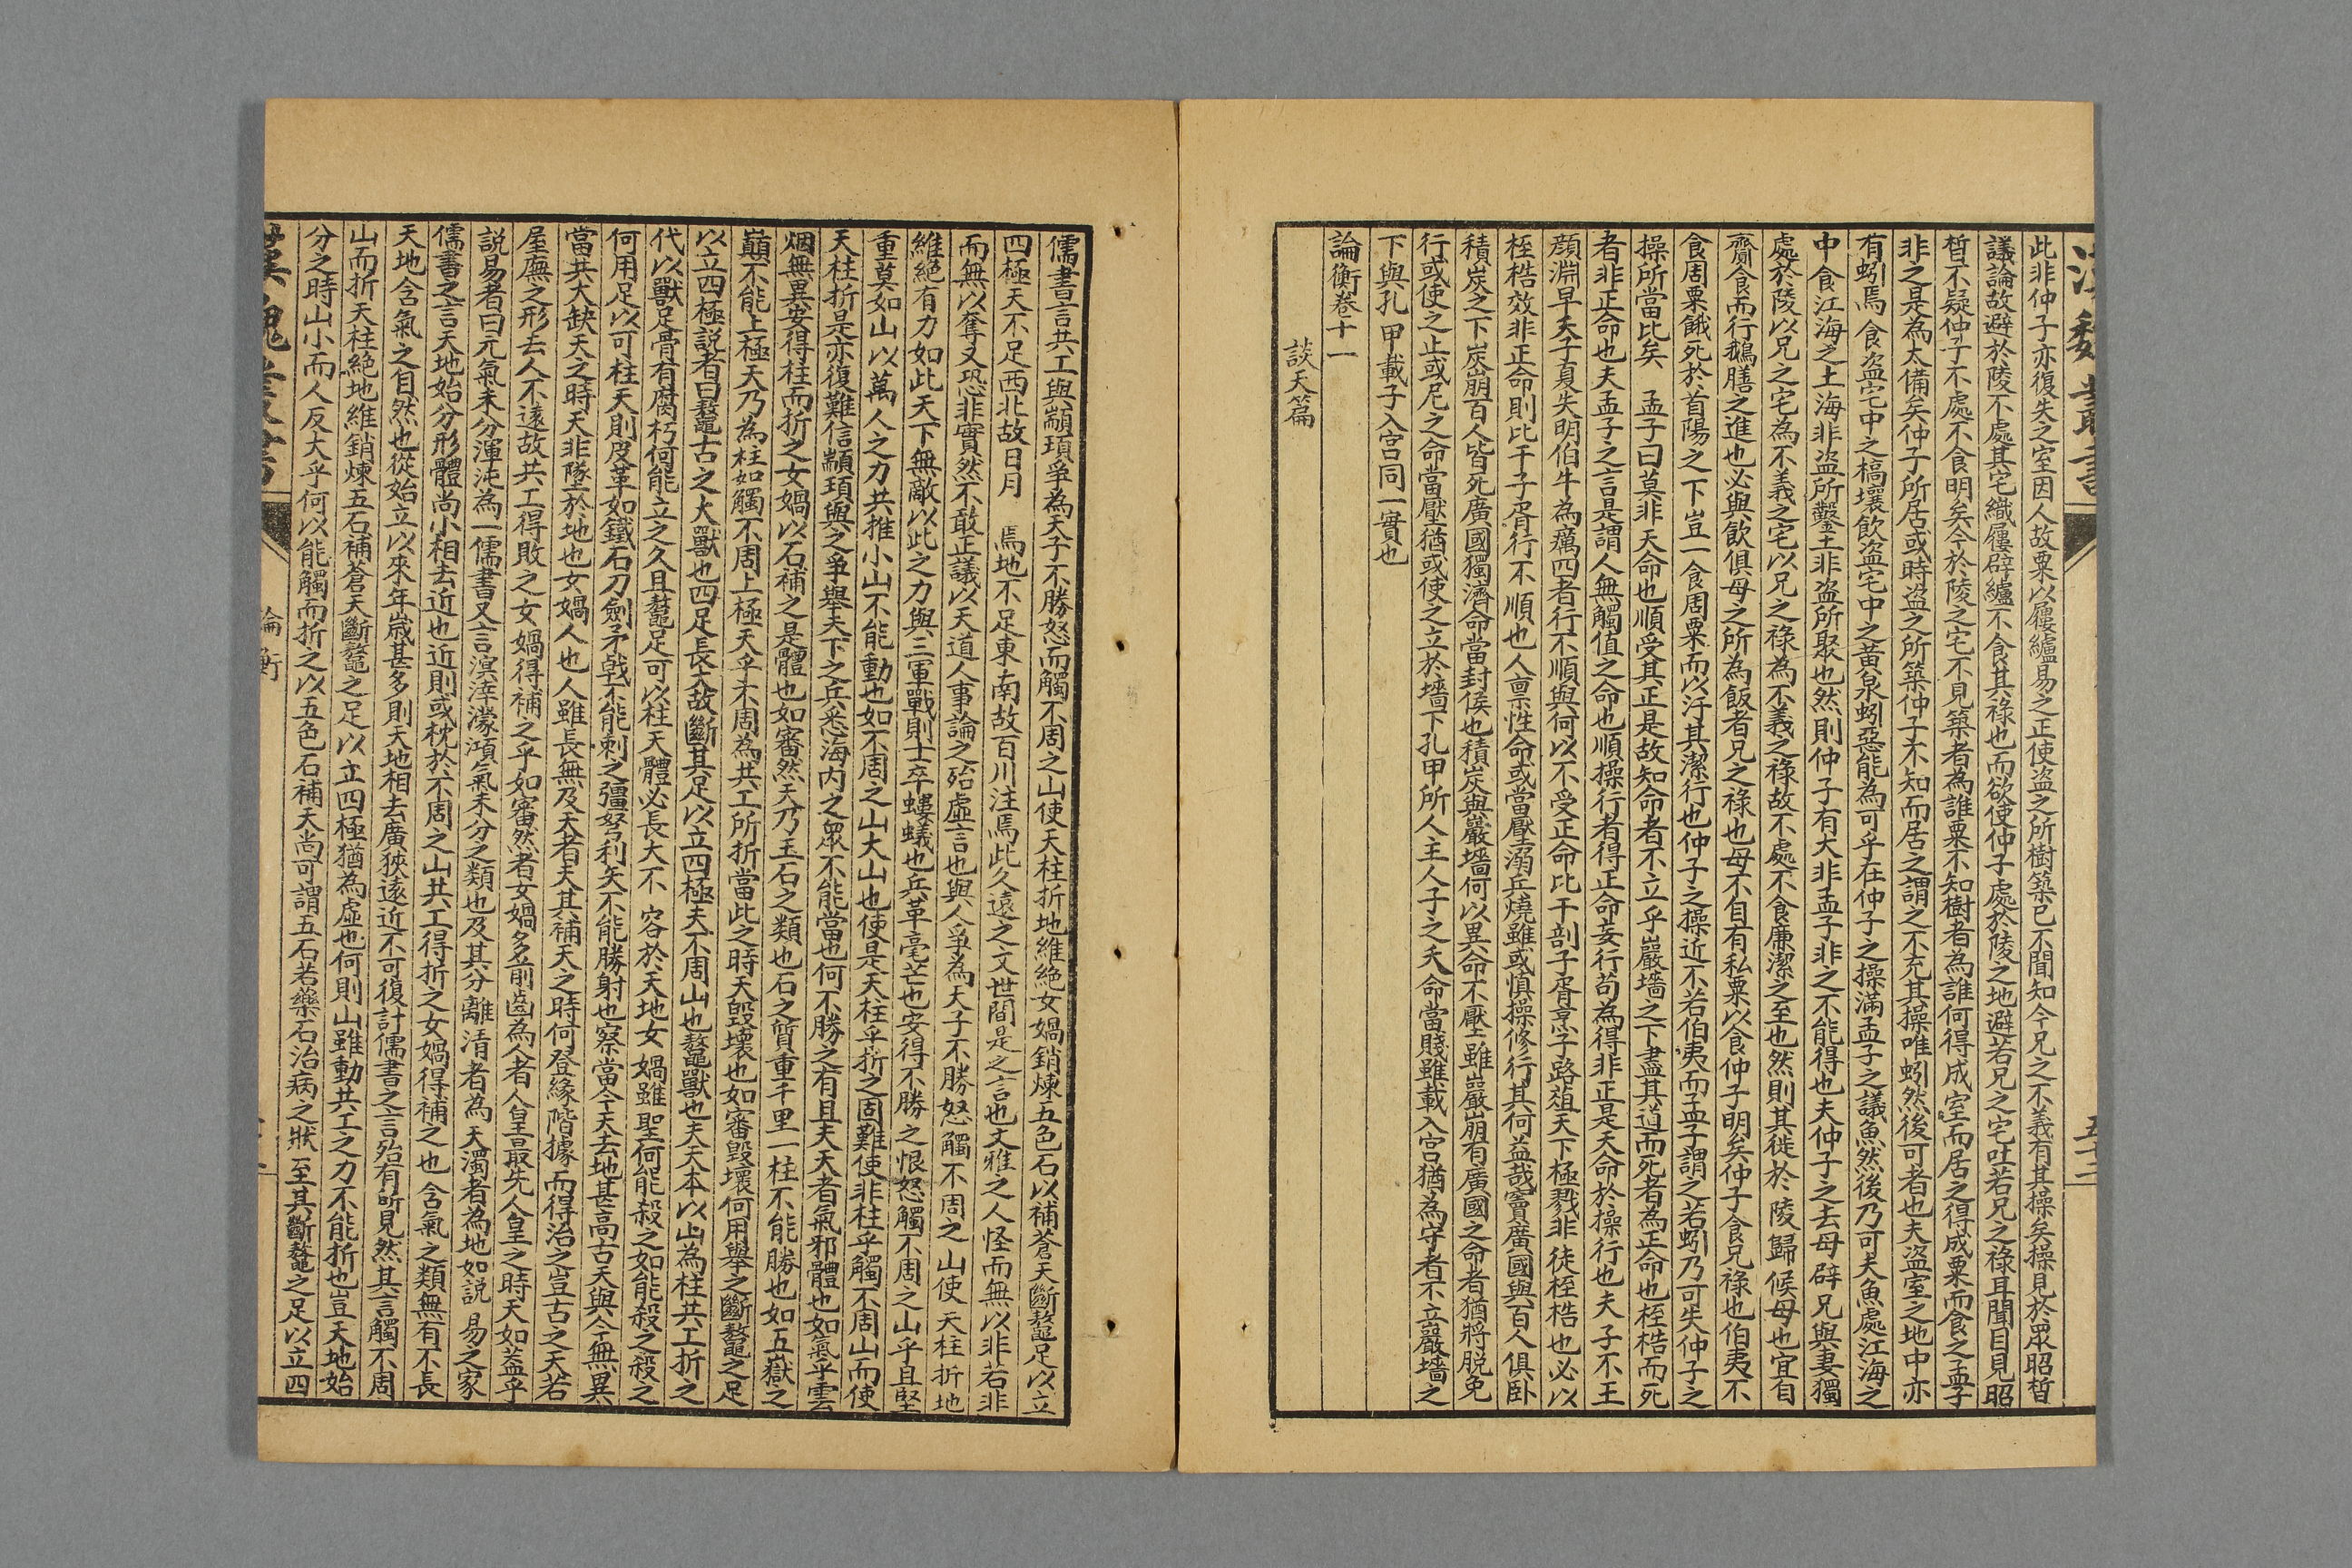 此非仲子亦復失之室因人故粟以屨纑易之正使盜之所樹築已不聞知今兄之不義有其操矣操見於眾昭晳
議論故避於陵不處其宅織屨辟纑不食其祿也而欲使仲子處於陵之地避若兄之宅吐若兄之祿耳聞目見昭
晳不疑仲子不處不食明矣今於陵之宅不見築者為誰粟不知樹者為誰何得成室而居之得成粟而食之孟子
非之是為太備矣仲子所居或時盜之所築仲子不知而居之謂之不充其操唯蚓然後可者也夫盜室之地中亦
有蚓焉食盜宅中之槁壤飲盜宅中之黃泉蚓惡能為可乎在仲子之操滿孟子之議魚然後乃可夫魚處江海之
中食江海之土海非盜所鑿土非盜所聚也然則仲子有大非孟子非之不能得也夫仲子之去母辟兄與妻獨
處於陵以兄之宅為不義之宅以兄之祿為不義之祿故不處不食廉潔之至也然則其徙於陵歸候母也宜自
齎食而行鵝膳之進也必與飲俱母之所為飯者兄之祿也母不自有私粟以食仲子明矣仲子食兄祿也伯夷不
食周粟餓死於首陽之下豈一食周粟而以汙其潔行也仲子之操近不若伯夷而孟子謂之若蚓乃可失仲子之
操所當比矣　孟子曰莫非天命也順受其正是故知命者不立乎巖墻之下盡其道而死者為正命也桎梏而死
者非正命也夫孟子之言是謂人無觸值之命也順操行者得正命妄行苟為得非正是天命於操行也夫子不王
顔淵早夭子夏失明伯牛為癘四者行不順與何以不受正命比干剖子胥烹子路葅天下極戮非徒桎梏也必以
桎梏效非正命則比干子胥行不順也人禀性命或當壓溺兵燒雖或慎操修行其何益哉竇廣國與百人俱卧
積炭之下炭崩百人皆死廣國獨濟命當封侯也積炭與巖墻何以異命不壓雖巖崩有廣國之命者猶將脱免
行或使之止或尼之命當壓猶或使之立於墻下孔甲所入主人子之夭命當賤雖載入宮猶為守者不立巖墻之
下與孔甲載子入宮同一實也
論衡卷十一
談天篇
儒書言共工與顓頊爭為天子不勝怒而觸不周之山使天柱折地維絕女媧銷煉五色石以補蒼天斷鼇足以立
四極天不足西北故日月　焉地不足東南故百川注焉此久遠之文世間是之言也文雅之人怪而無以非若非
而無以奪又恐非實然不敢正議以天道人事論之殆虛言也與人爭為天子不勝怒觸不周之山使天柱折地
維絕有力如此天下無敵以此之力與三軍戰則士卒螻蟻也兵革毫芒也安得不勝之恨怒觸不周之山乎且堅
重莫如山以萬人之力共推小山不能動也如不周之山大山也使是天柱乎折之固難使非柱乎觸不周山而使
天柱折是亦復難信顓頊與之爭舉天下之兵悉海內之眾不能當也何不勝之有且夫天者氣邪體也如氣乎雲
烟無異安得柱而折之女媧以石補之是體也如審然天乃玉石之類也石之質重千里一柱不能勝也如五嶽之
巔不能上極天乃為柱如觸不周上極天乎不周為共工所折當此之時天毀壞也如審毀壞何用舉之斷鼇之足
以立四極說者曰鼇古之大獸也四足長大故斷其足以立四極夫不周山也鼇獸也夫天本以山為柱共工折之
代以獸足骨有腐朽何能立之久且鼇足可以柱天體必長大不　容於天地女媧雖聖何能殺之如能殺之殺之
何用足以可柱天則皮革如鐵石刀劍矛戟不能刺之彊弩利矢不能勝射也察當今天去地甚高古天與今無異
當共大缺天之時天非墜於地也女媧人也人雖長無及天者夫其補天之時何登緣階據而得治之豈古之天若
屋廡之形去人不遠故共工得敗之女媧得補之乎如審然者女媧多前齒為人者人皇最先人皇之時天如蓋乎
說易者曰元氣未分渾沌為一儒書又言溟涬濛澒氣未分之類也及其分離清者為天濁者為地如說易之家
儒書之言天地始分形體尚小相去近也近則或枕於不周之山共工得折之女媧得補之也含氣之類無有不長
天地含氣之自然也從始立以來年歲甚多則天地相去廣狹遠近不可復計儒書之言殆有所見然其言觸不周
山而折天柱絕地維銷煉五石補蒼天斷鼇之足以立四極猶為虛也何則山雖動共工之力不能折也豈天地始
分之時山小而人反大乎何以能觸而折之以五色石補天尚可謂五石若藥石治病之狀至其斷鼇之足以立四
漢魏叢書　論衡